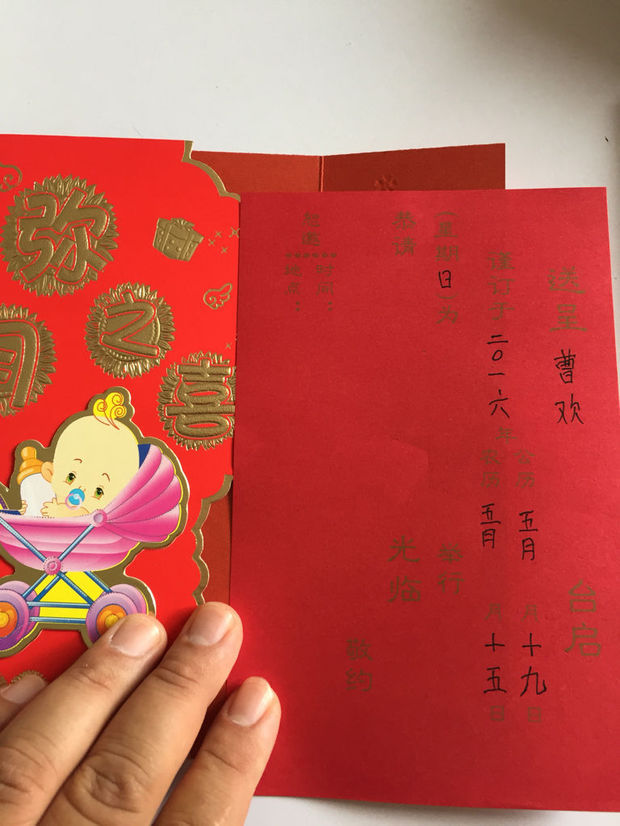 弥
月
之
喜
送呈 曹欢 台启
谨订于 二〇一六 年
公历 五月 月 十九 日
农历 五月 月 十五 日
(星期 日 )为 举行
恭请 光临
敬约
时间:
地点: